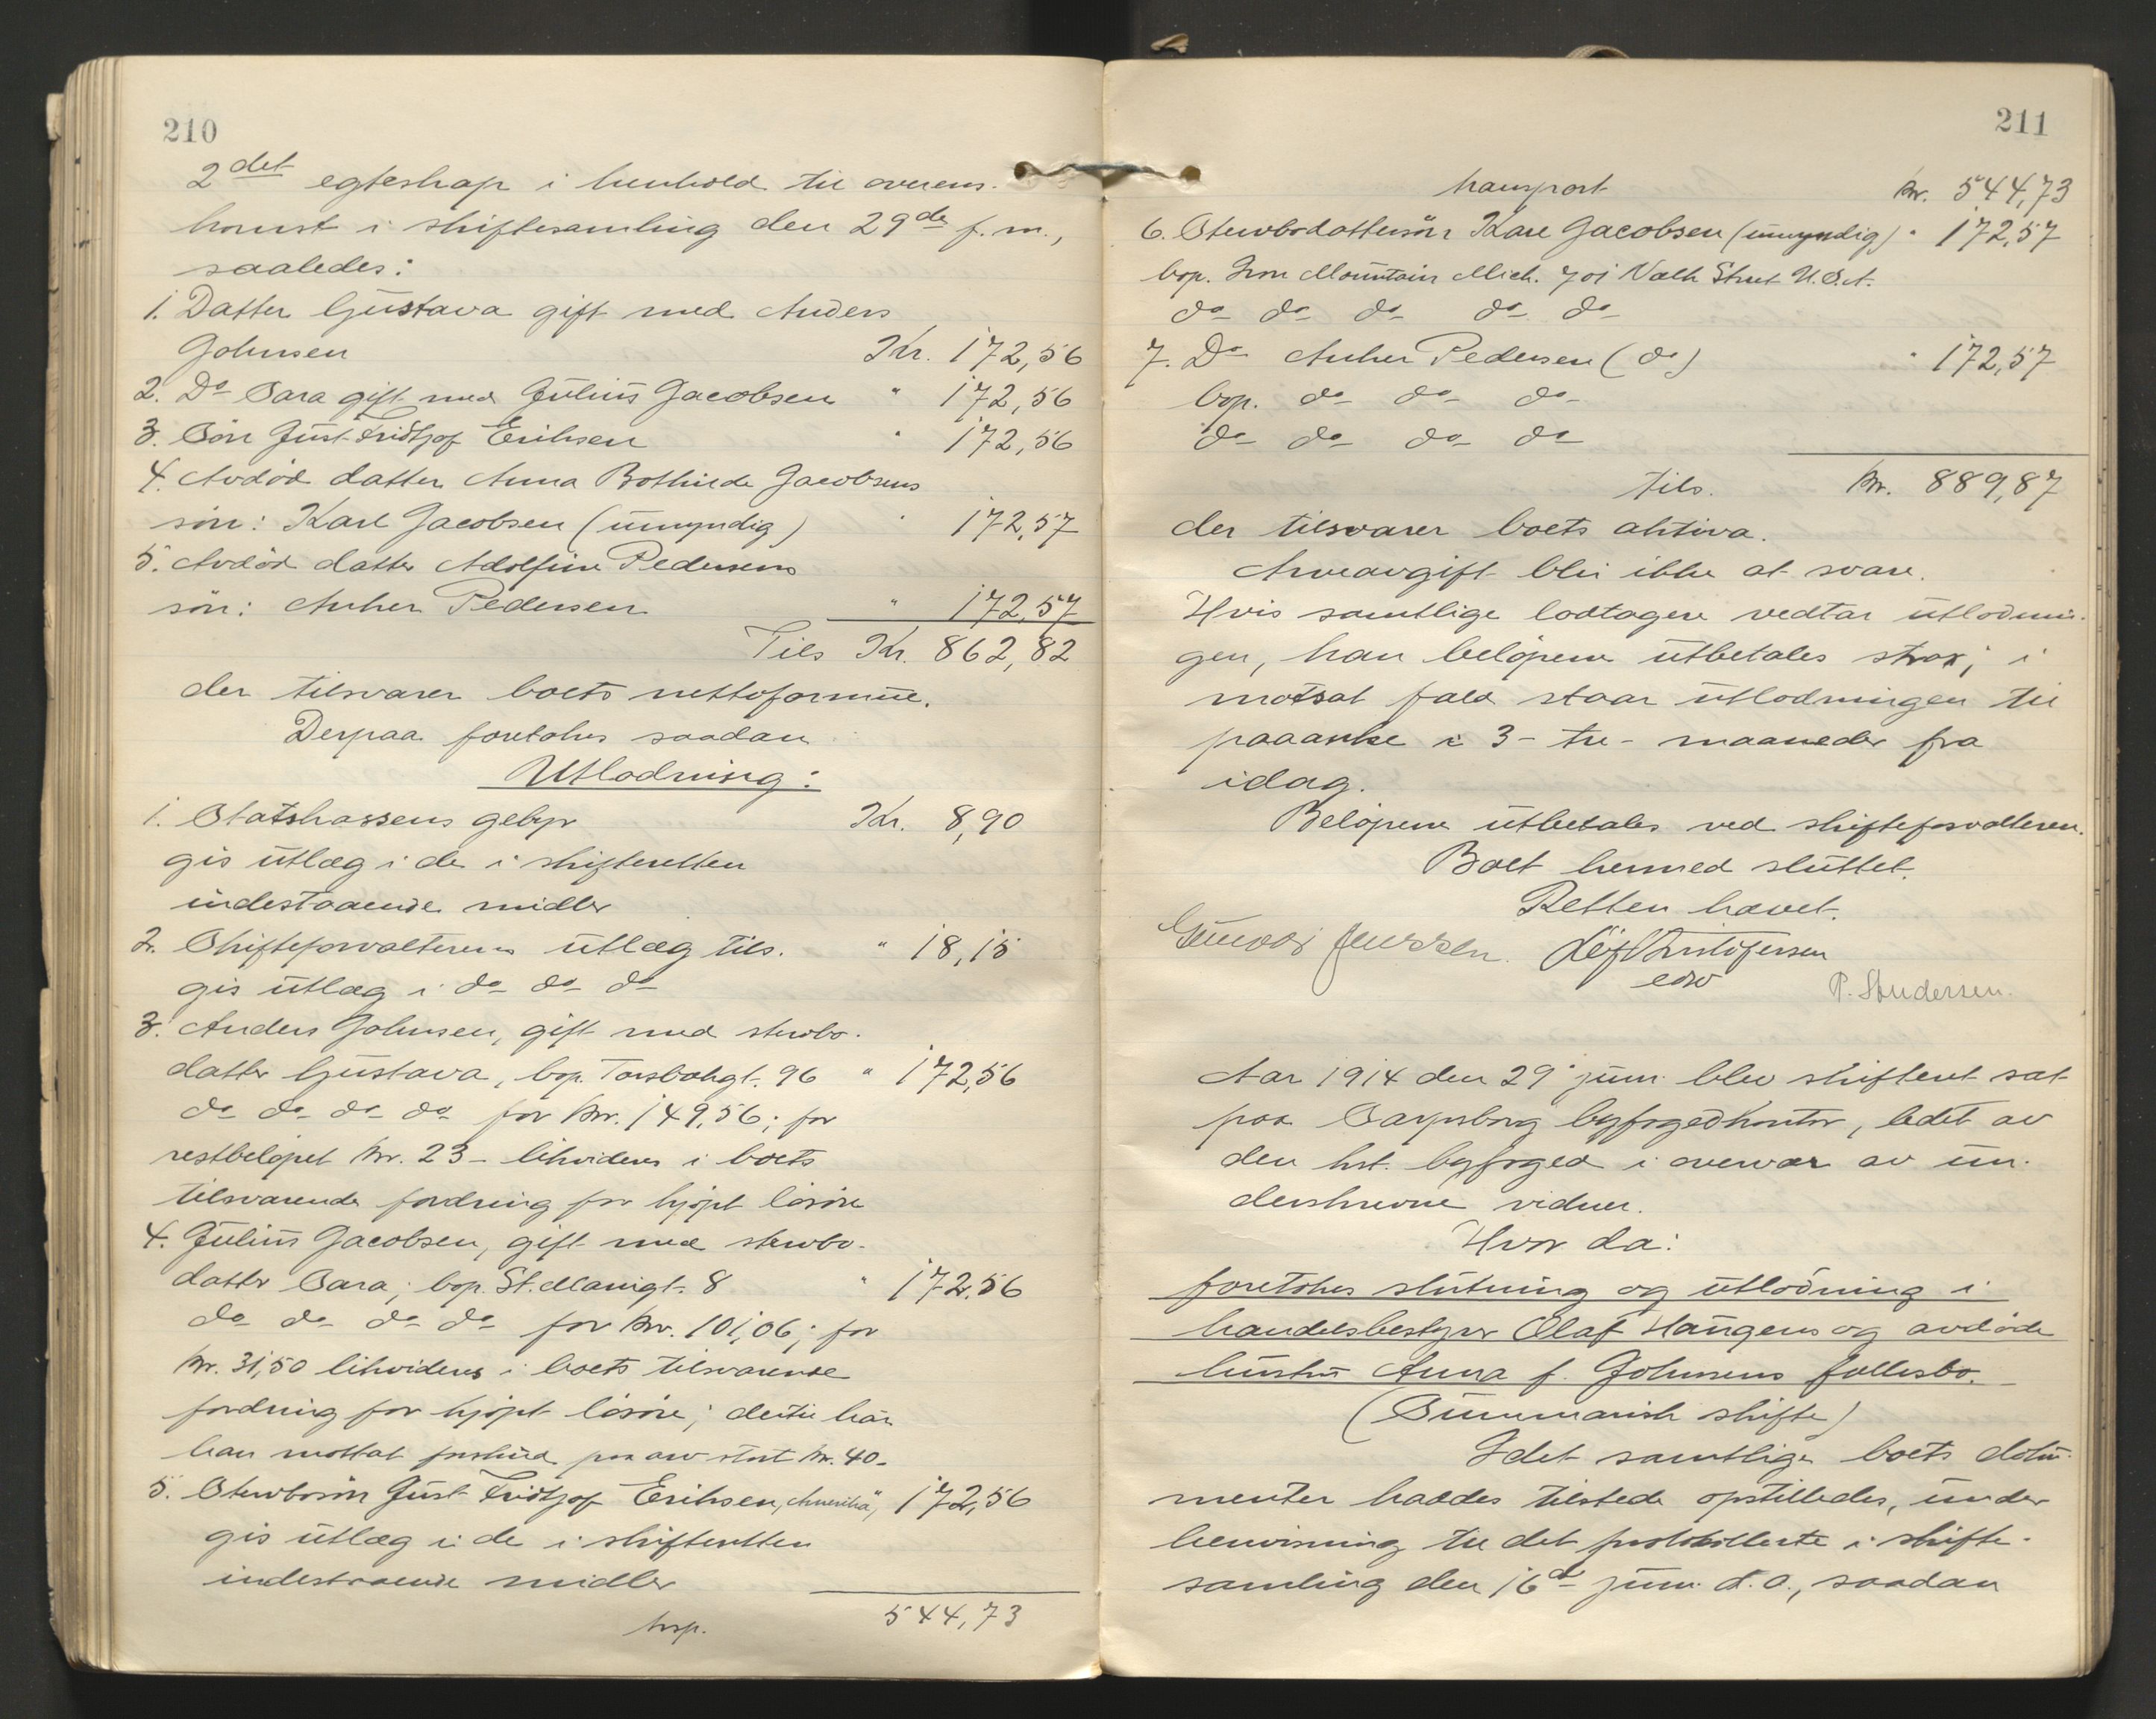 210
2det egteskap i henhold til overens-
komst i skiftesamling den 29de f.m.,
saaledes:
1. Datter Gustava gift med Anders
Johnsen Kr. 172,56
2. Do Sara gift med Julius Jacobsen " 172,56
3. Søn Just Fridtjof Eriksen " 172,56
4. Avdød datter Anna Bothilde Jacobsens
søn: Karl Jacobsen (umyndig) " 172,57
5. Avdød datter Adolfine Pedersens
søn: Anker Pedersen " 172,57
Tils Kr. 862,82
der tilsvarer boets nettoformue.
Derpaa foretokes saadan
Utlodning:
1. Statskassens gebyr Kr. 8,90
gis utlæg i de i skifteretten
indestaaende midler
2. Skifteforvalterens utlæg tils. " 18,15
gis utlæg i do do do
3. Anders Johnsen, gift med stervbo-
datter Gustava, bop. Torsbakgt. 96 " 172,56
do do do do for kr. 149,56; for
restbeløpet kr. 23 - likvideres i boets
tilsvarende fordring for kjøpt løsøre
4. Julius Jacobsen, gift med stervbo-
datter Sara; bop. St. Mariegt. 8 " 172,56
do do do do for kr. 101,06; for
kr. 31,50 likvideres i boets tilsvarende
fordring for kjøpt løsøre; dertil har
han mottat forskud paa arv stort kr. 40-
5. Stervbosøn Just Fridtjof Eriksen, Amerika, 172,56
gis utlæg i de i skifteretten
indestaaende midler
trsp. 544,73
211
transport kr. 544,73
6. Stervbodattersøn Karl Jacobsen (umyndig) " 172,57
bop. Iron Mountain Mich. 701 Street U.S.A.
do do do do do
7. Do Anker Pedersen (do) " 172,57
bop. do do do
do do do do
Tils. kr. 889,87
der tilsvarer boets aktiva.
Arveavgift blir ikke at svare.
Hvis samtlige lodtagere vedtar utlodnin-
gen, kan beløpene utbetales strax; i
motsat fald staar utlodningen til
paaanke i 3 - tre - maaneder fra
idag.
Beløpene utbetales ved skifteforvalteren.
Boet hermed sluttet.
Retten hævet.
Gunvor Jenssen. Leif Kristofersen
edsv P. Andersen.
Aar 1914 den 29 juni blev skifteret sat
paa Sarpsborg byfogedkontor, ledet av
den kst. byfoged i overvær av un-
derskrevne vidner.
Hvor da:
foretokes slutning og utlodning i
handelsbestyrer Olaf Haugens og avdøde
hustru Anna f. Johnsens fællesbo.
(Summarisk skifte)
Idet samtlige boets doku-
menter haddes tilstede opstilledes, under
henvisning til det protokollerte i skifte-
samling den 16de juni d.a., saadan